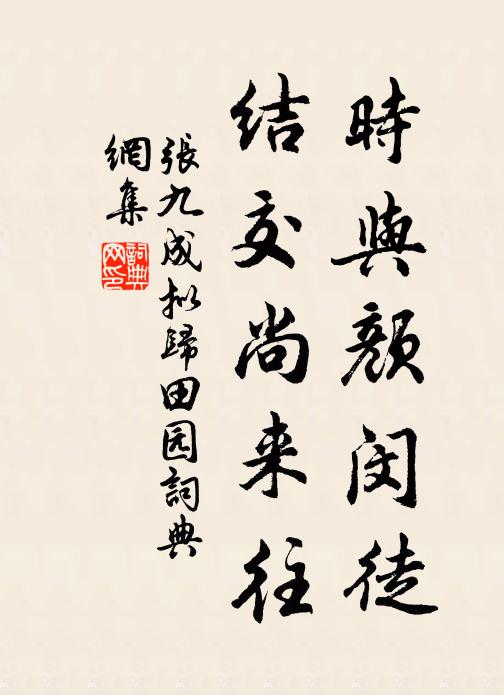 時與顏閔徒
结交尚来往
張九成拟歸田园詞典
網集
詞典網印